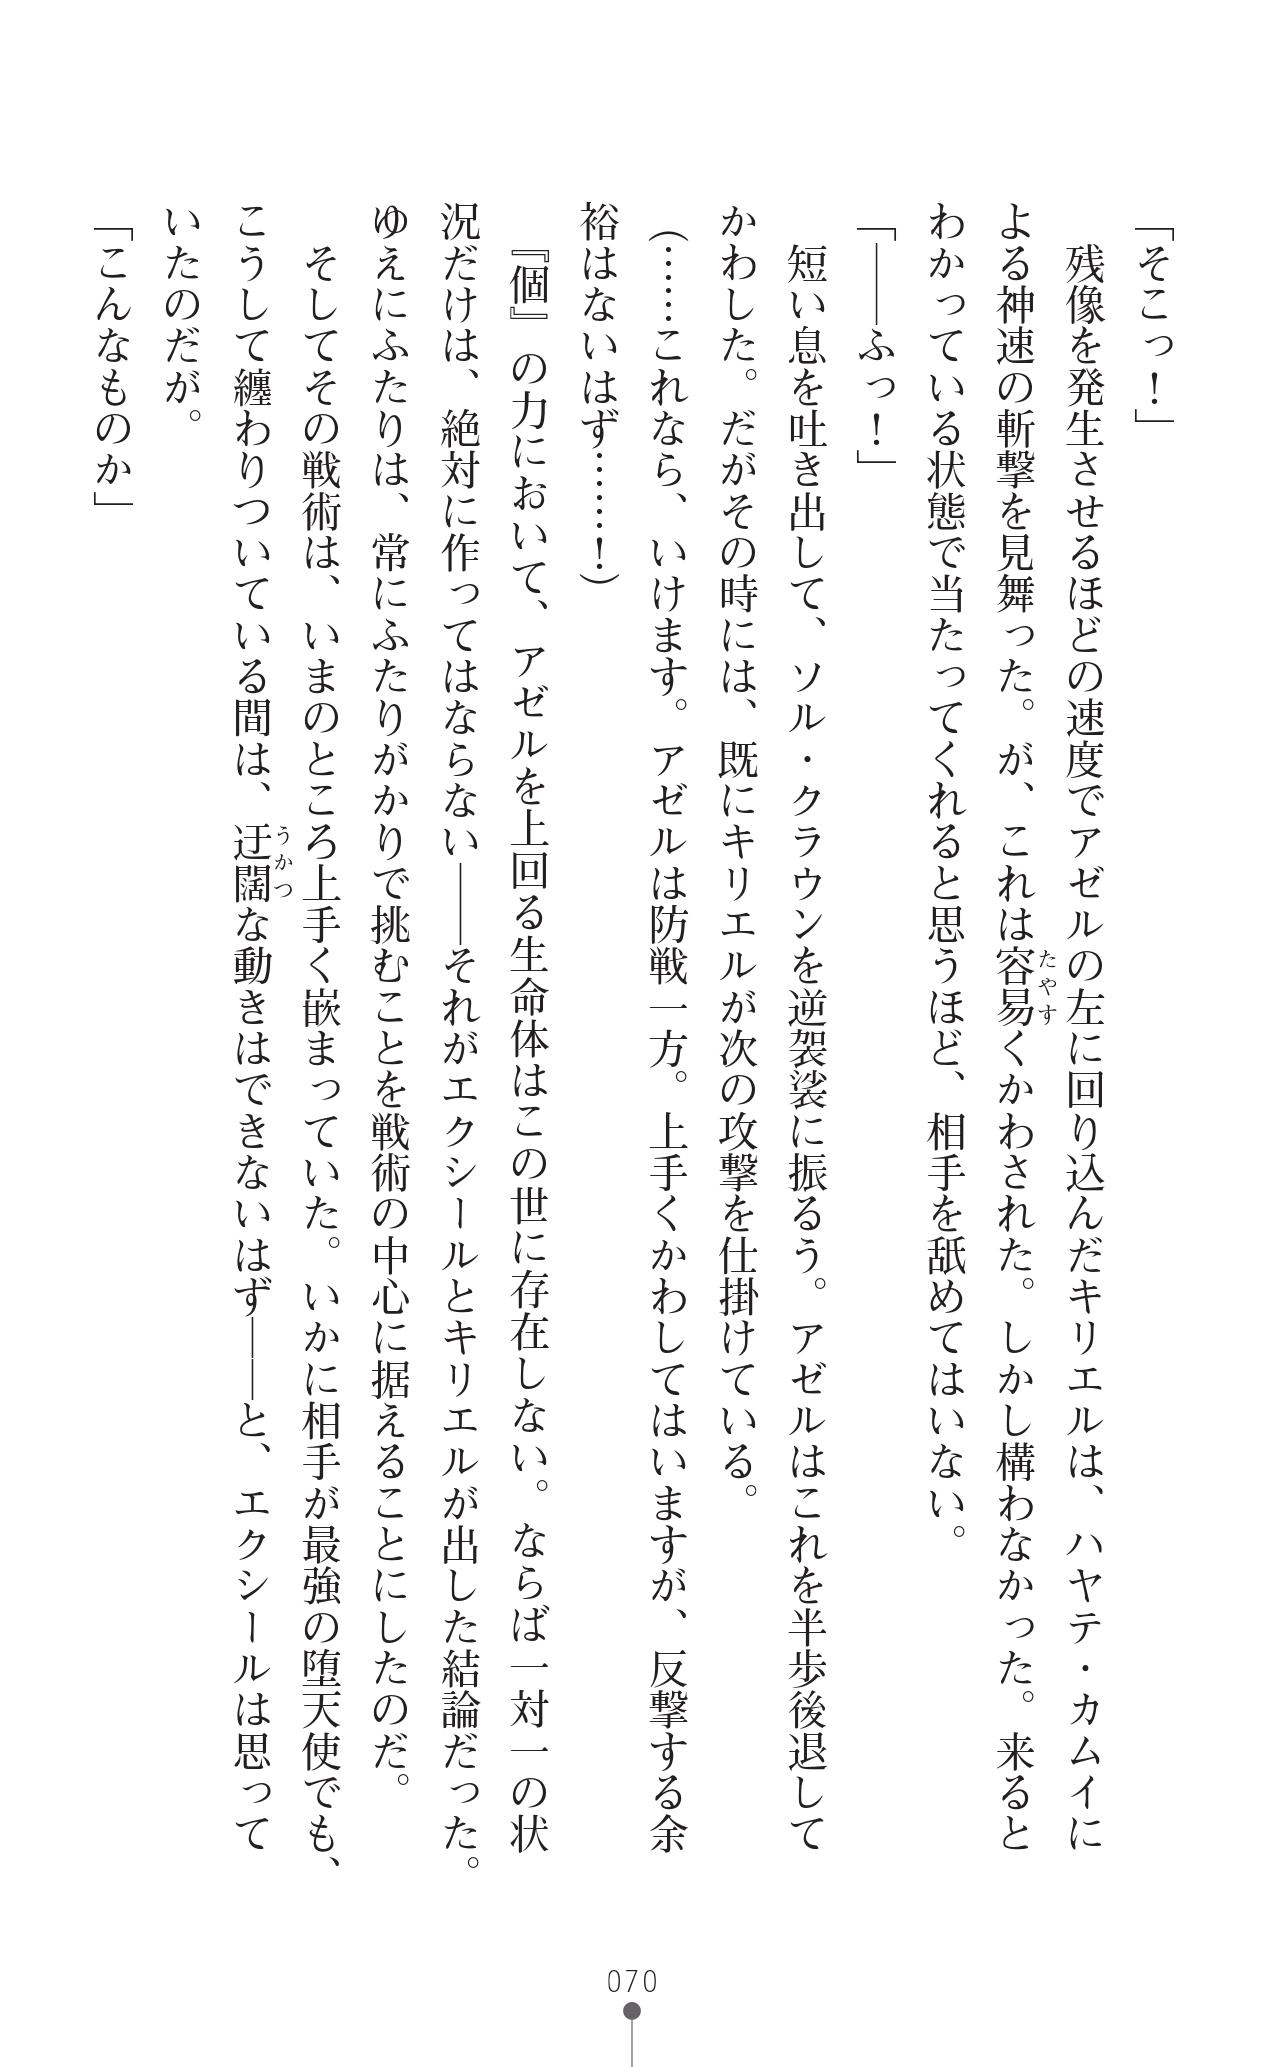 「そこっ！」
　残像を発生させるほどの速度でアゼルの左に回り込んだキリエルは、ハヤテ・カムイに
よる神速の斬撃を見舞った。が、これは容易くかわされた。しかし構わなかった。来ると
たやす
わかっている状態で当たってくれると思うほど、相手を舐めてはいない。
「――ふっ！」
　短い息を吐き出して、ソル・クラウンを逆袈裟に振るう。アゼルはこれを半歩後退して
かわした。だがその時には、既にキリエルが次の攻撃を仕掛けている。
（……これなら、いけます。アゼルは防戦一方。上手くかわしてはいますが、反撃する余
裕はないはず……！）
　『個』の力において、アゼルを上回る生命体はこの世に存在しない。ならば一対一の状
況だけは、絶対に作ってはならない――それがエクシールとキリエルが出した結論だった。
ゆえにふたりは、常にふたりがかりで挑むことを戦術の中心に据えることにしたのだ。
　そしてその戦術は、いまのところ上手く嵌まっていた。いかに相手が最強の堕天使でも、
こうして纏わりついている間は、迂闊な動きはできないはず――と、エクシールは思って
うかつ
いたのだが。
「こんなものか」
070